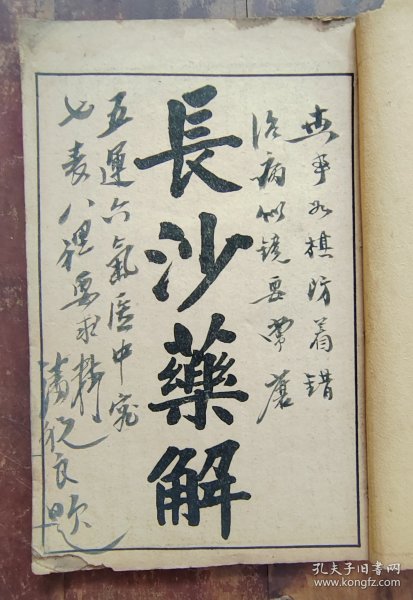 世事如棋防着错
治病似镜要常磨
長沙藥解
五運六氣医中究
七表八裡要求精
良题
孔夫子旧书网
www.kongfz.com